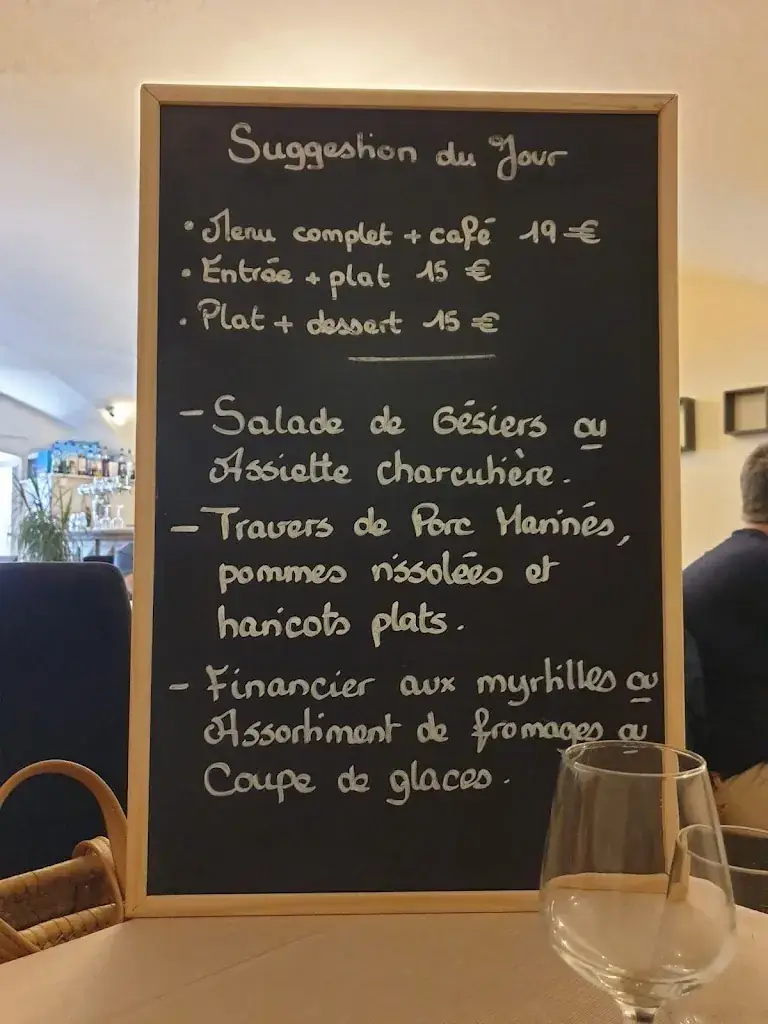 Suggestion du Jour
• Menu complet + café 19 €
• Entrée + plat 15 €
• Plat + dessert 15 €
– Salade de Gésiers ou
Assiette charcutière.
– Travers de Porc Marinés,
pommes rissolées et
haricots plats.
– Financier aux myrtilles ou
Assortiment de fromages ou
Coupe de glaces.